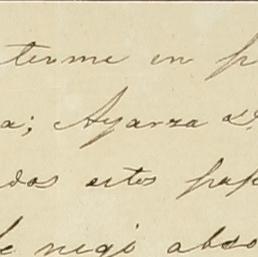 terme en p
a; Ayarza D.
dos estos pap
le negó abso